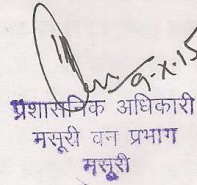 9-X-15
प्रशासनिक अधिकारी
मसूरी वन प्रभाग
मसूरी